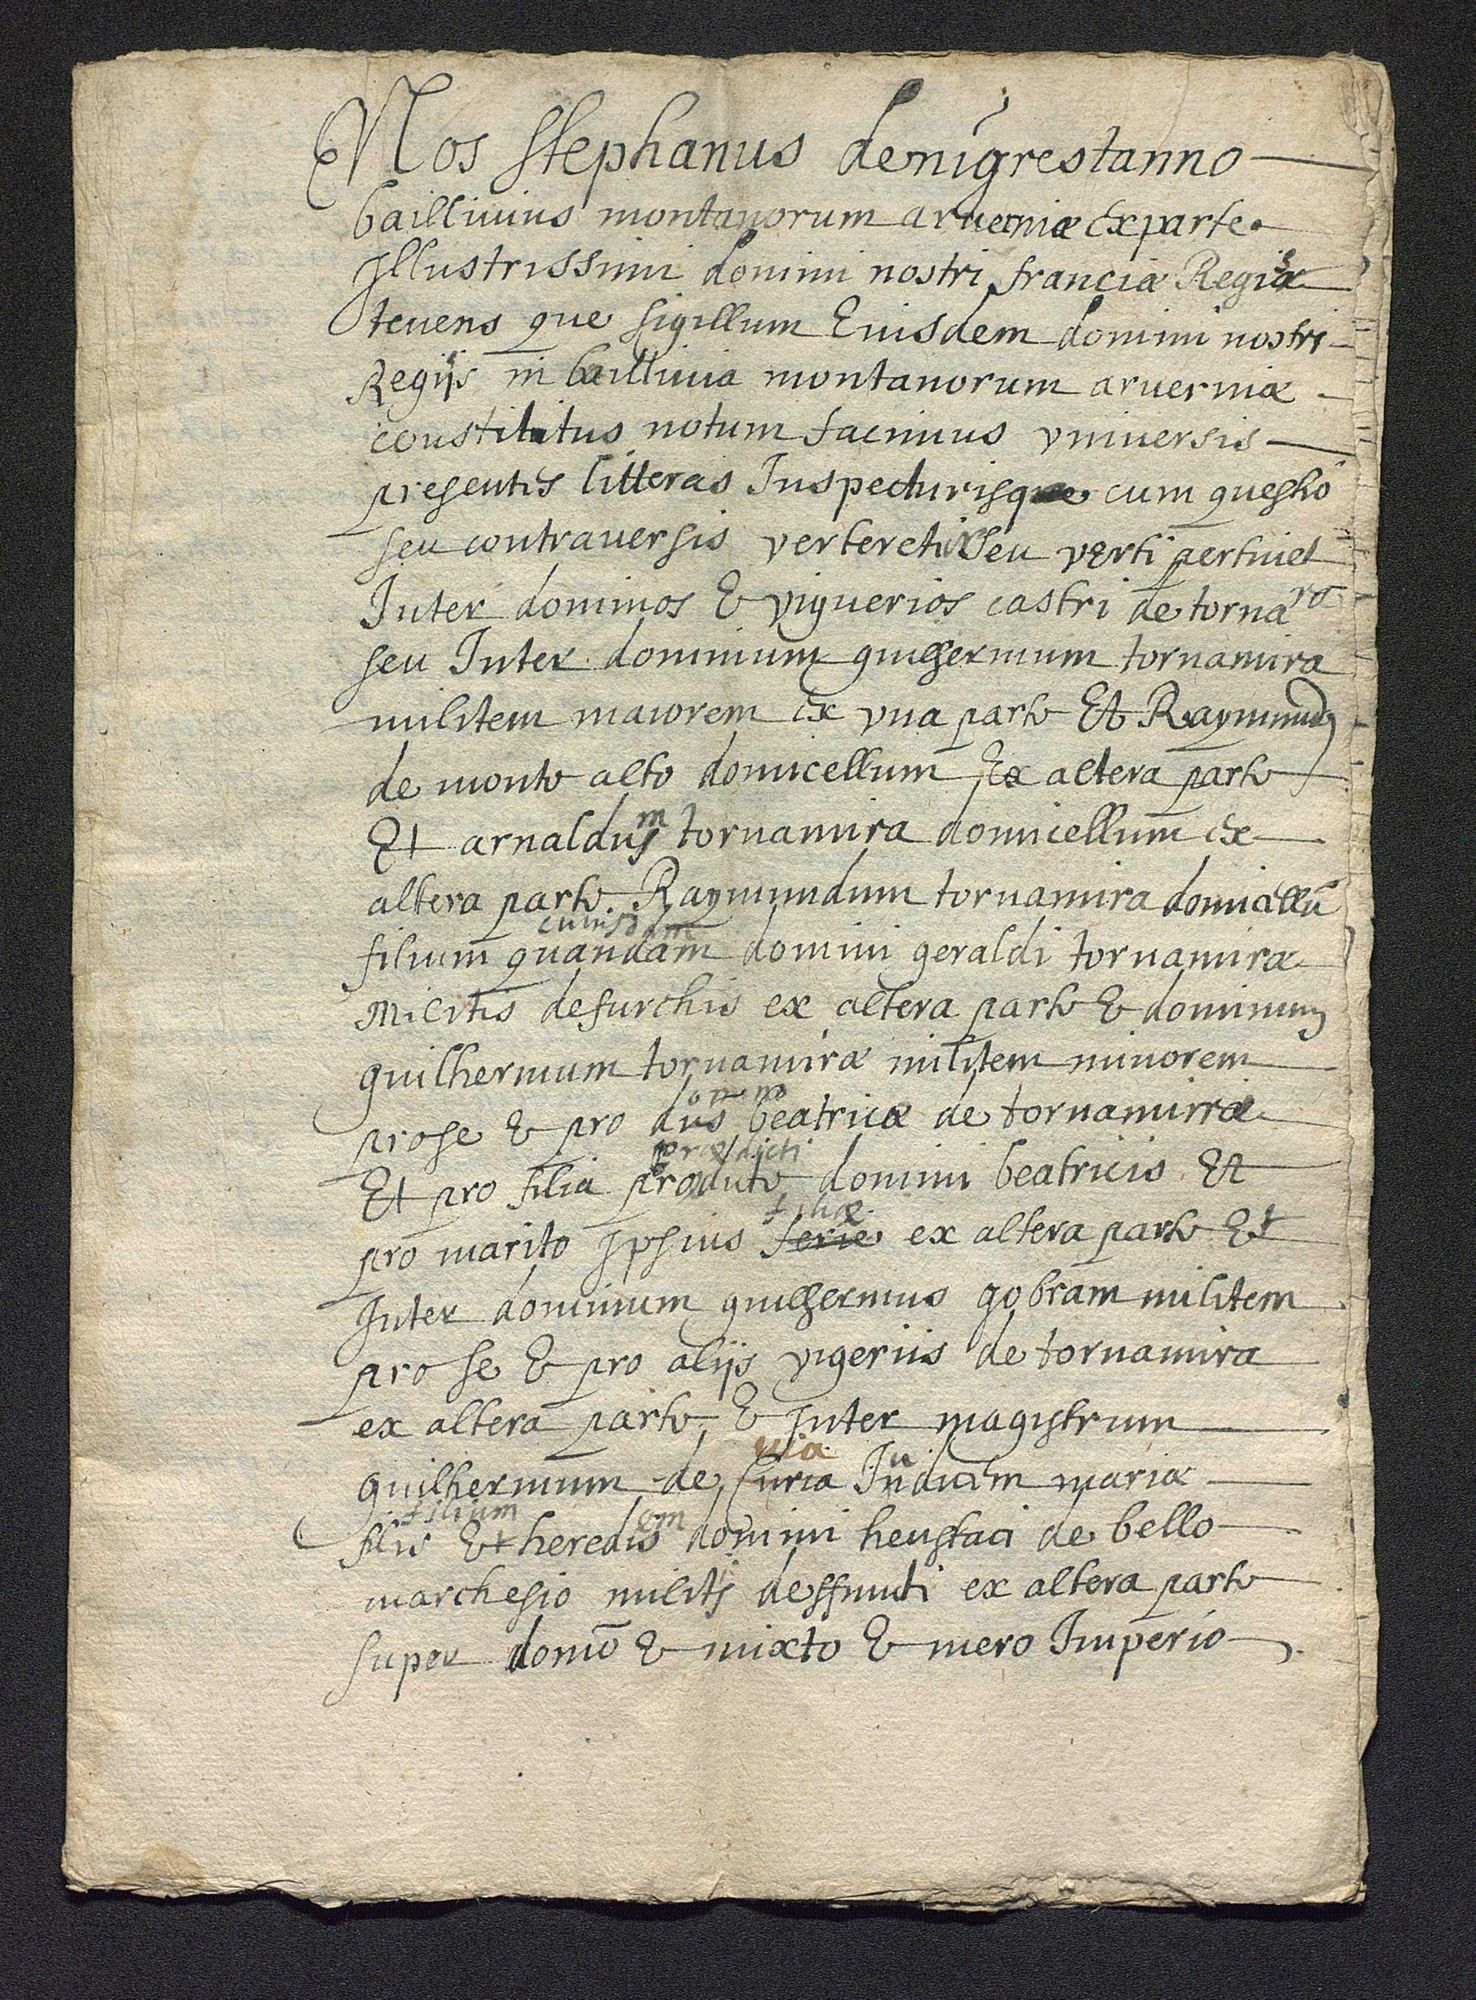 Nos stephanus denigrestanno
baillivius montanorum arverniæ Ex parte
Illustrissimi domini nostri franciæ Regis
tenens que sigillum Eiusdem domini nostri
Regiis in baillivia montanorum arverniæ
constitutus notum facimus universis
presentis litteras Inspecturisque cum questio
seu contraversis verteretur seu verti
Inter dominos & viguerios castri de torna
seu Inter dominum guilhermum tornamira
militem maiorem ex una parte Et Raymund
de monte alto domicellum Ex altera parte
Et arnaldum tornamira domicellum ex
altera parte Raymundum tornamira domicellū
cuiusdam
filium quandam domini geraldi tornamira
Militis defurchis ex altera parte & dominum
guilhermum tornamiræ militem minorem
prose & pro beatricæ de tornamirræ
prædicti
Et pro filia domini beatricis Et
filiæ
pro marito Ipsius ferie ex altera parte Et
Inter dominum guilhermus gobram militem
pro se & pro aliis vigeriis de tornamira
ex altera parte & Inter magistrum
guilhermum de Curia mariæ
filium em
filis Et heredis domini heustaci de bello
marchesio militis deffuncti ex altera parte
super & mixto & mero Imperio